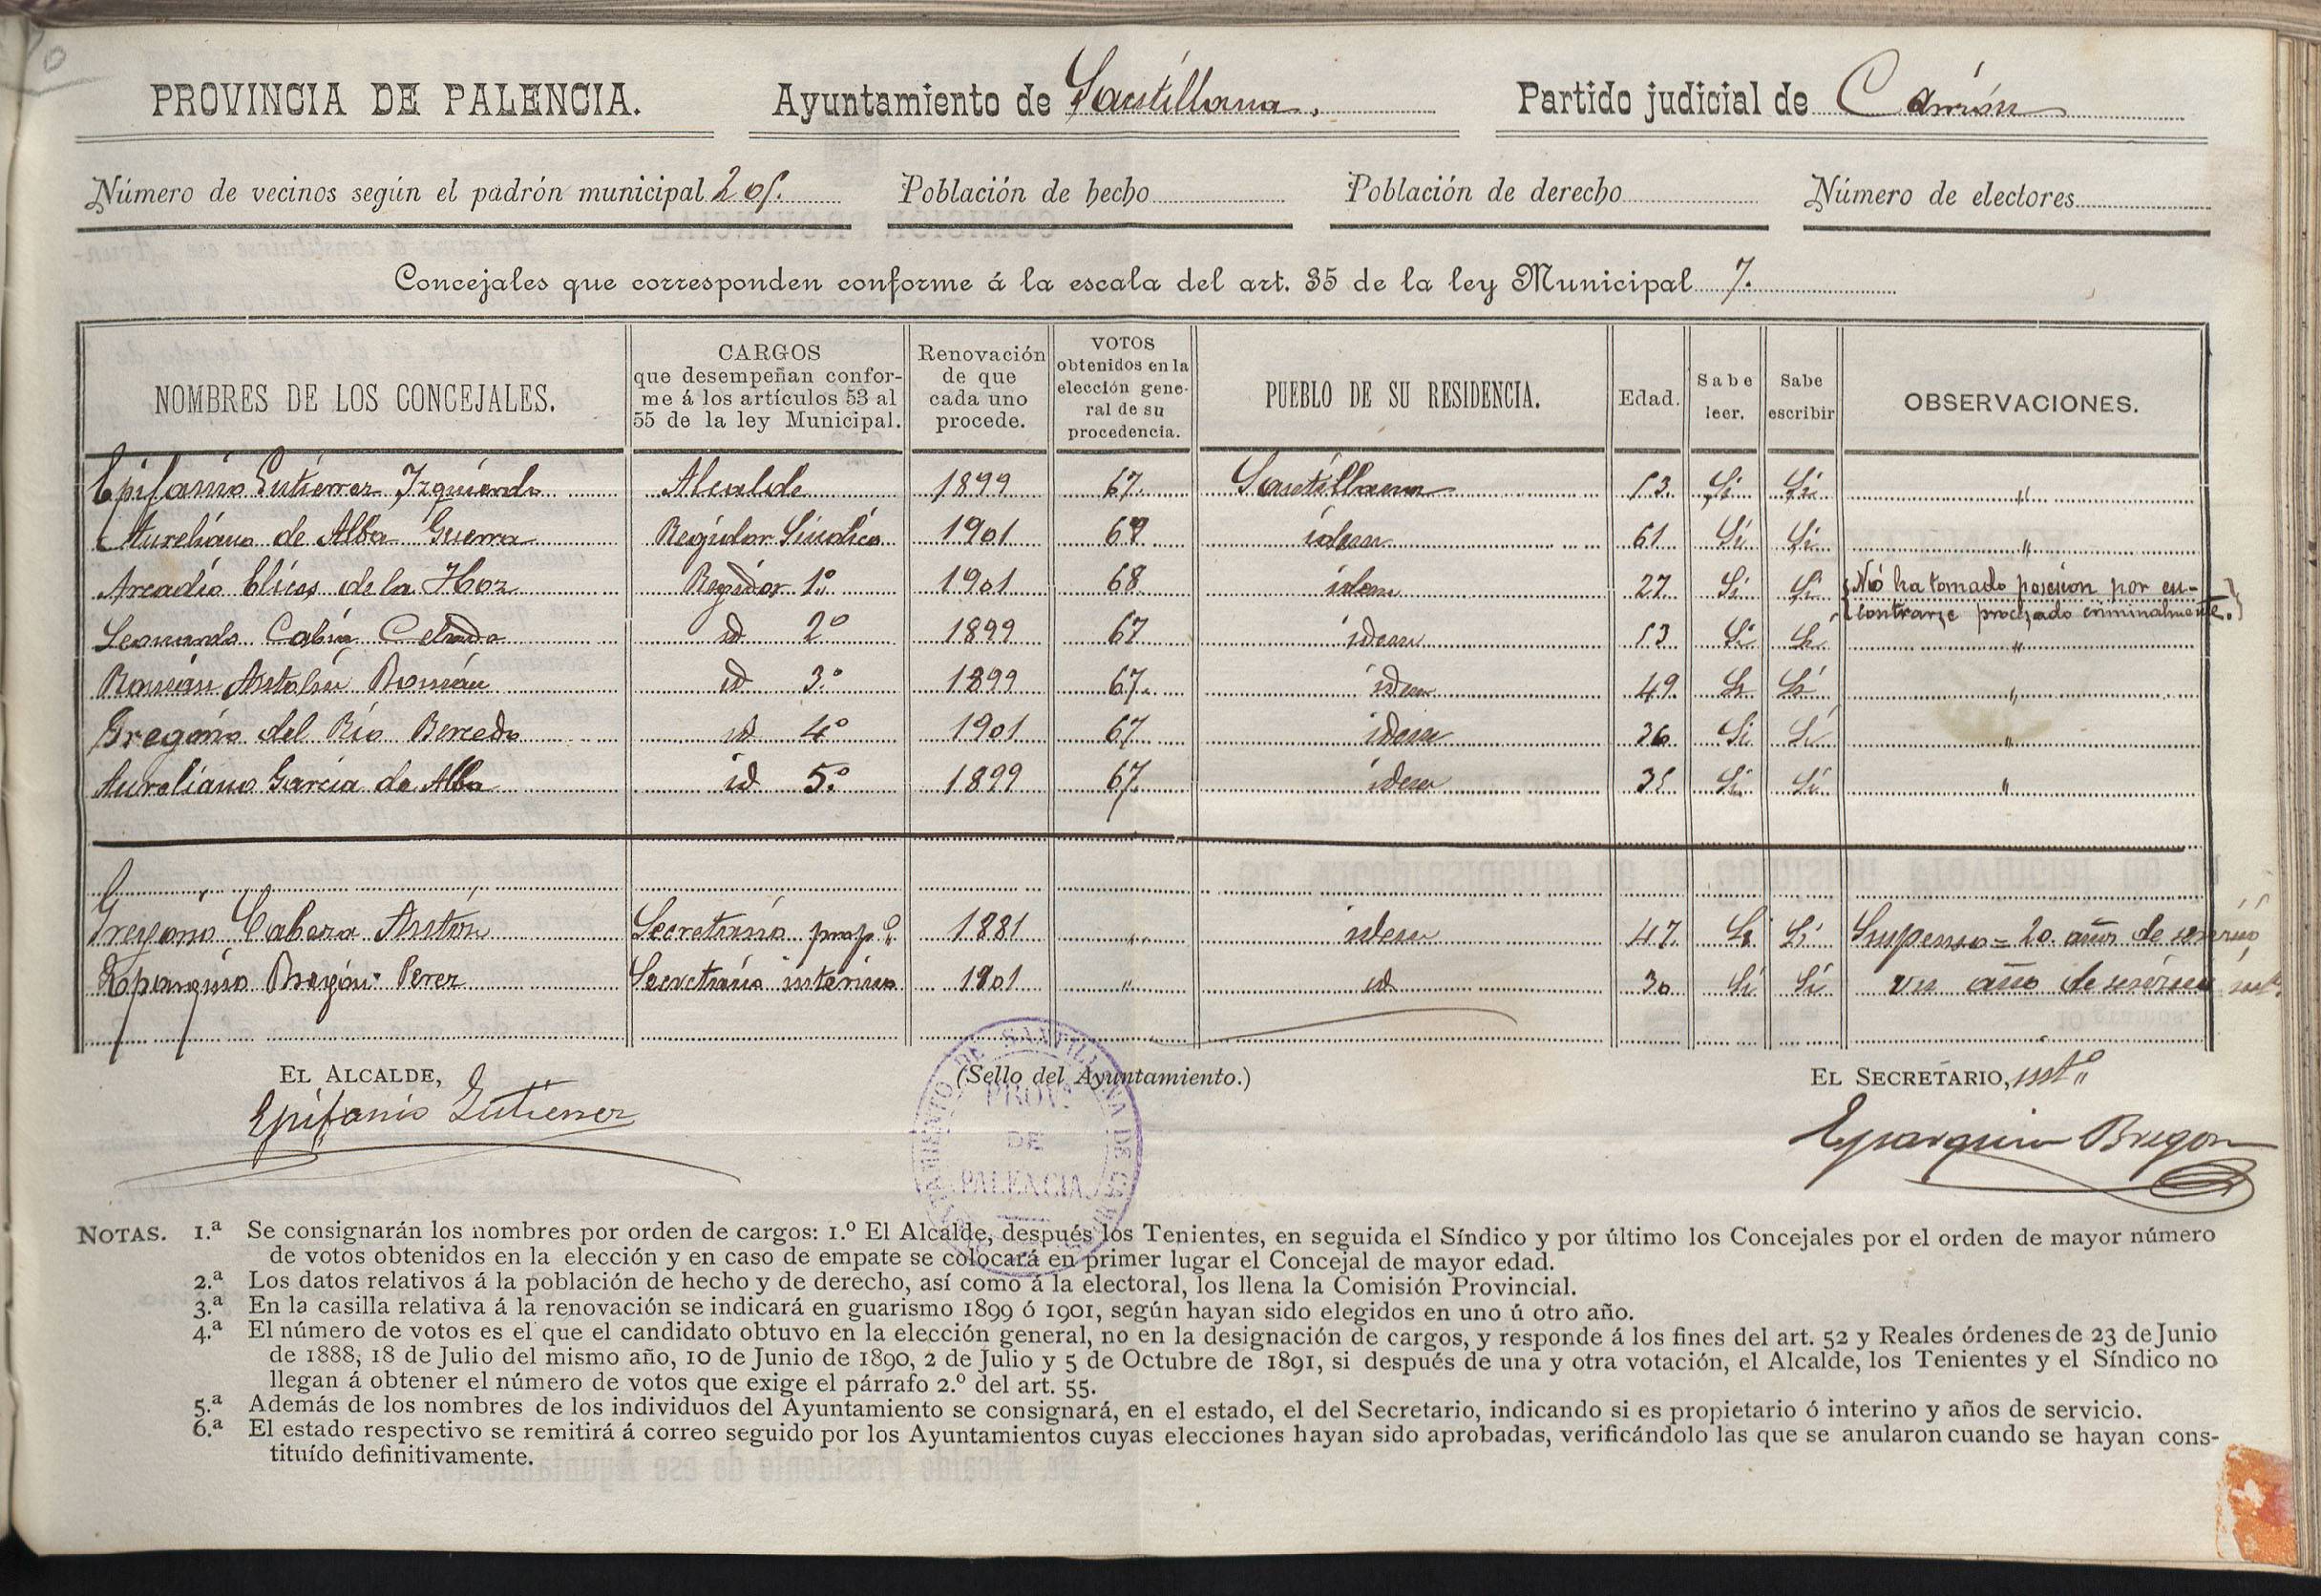 PROVINCIA DE PALENCIA. Ayuntamiento de Santillana. Partido judicial de Carrión
Número de vecinos según el padrón municipal 205. Población de hecho Población de derecho Número de electores
Concejales que corresponden conforme á la escala del art. 35 de la ley Municipal 7.
NOMBRES DE LOS CONCEJALES. CARGOS que desempeñan confor- me á los artículos 53 al 55 de la ley Municipal. Renovación de que cada uno procede. VOTOS obtenidos en la elección gene- ral de su procedencia. PUEBLO DE SU RESIDENCIA. Edad. Sabe leer. Sabe escribir OBSERVACIONES.
Epifanio Gutierrez Izquierdo Alcalde 1899 67 Santillana 53 Si Si "
Aureliano de Alba Guerra Regidor Sindico 1901 69 idem 61 Si Si "
Arcadio Ulices de la Hoz Regidor 1º 1901 68 idem 27 Si Si No ha tomado posesion por en-
contrarse procesado criminalmente.
Leonardo Cabia Celada id 2º 1899 67 idem 53 Si Si "
Román Antolin Román id 3º 1899 67 idem 49 Si Si "
Gregorio del Rio Berzedo id 4º 1901 67 idem 36 Si Si "
Aureliano Garcia de Alba id 5º 1899 67 idem 35 Si Si "
Gregorio Cabeza Antón Secretario prop.º 1881 " idem 47 Si Si Suspenso = 20 años de servicio
Eparquio Bregón Perez Secretario interino 1901 " id 30 Si Si un año de servicio int.º
EL ALCALDE, (Sello del Ayuntamiento.) EL SECRETARIO, int.º
Epifanio Gutierrez
Eparquio Bregon
AYUNTAMIENTO DE SANTILLANA DE
PROV.ª
DE
PALENCIA
NOTAS. 1.ª Se consignarán los nombres por orden de cargos: 1.º El Alcalde, después los Tenientes, en seguida el Síndico y por último los Concejales por el orden de mayor número
de votos obtenidos en la elección y en caso de empate se colocará en primer lugar el Concejal de mayor edad.
2.ª Los datos relativos á la población de hecho y de derecho, así como á la electoral, los llena la Comisión Provincial.
3.ª En la casilla relativa á la renovación se indicará en guarismo 1899 ó 1901, según hayan sido elegidos en uno ú otro año.
4.ª El número de votos es el que el candidato obtuvo en la elección general, no en la designación de cargos, y responde á los fines del art. 52 y Reales órdenes de 23 de Junio
de 1888, 18 de Julio del mismo año, 10 de Junio de 1890, 2 de Julio y 5 de Octubre de 1891, si después de una y otra votación, el Alcalde, los Tenientes y el Síndico no
llegan á obtener el número de votos que exige el párrafo 2.º del art. 55.
5.ª Además de los nombres de los individuos del Ayuntamiento se consignará, en el estado, el del Secretario, indicando si es propietario ó interino y años de servicio.
6.ª El estado respectivo se remitirá á correo seguido por los Ayuntamientos cuyas elecciones hayan sido aprobadas, verificándolo las que se anularon cuando se hayan cons-
tituído definitivamente.